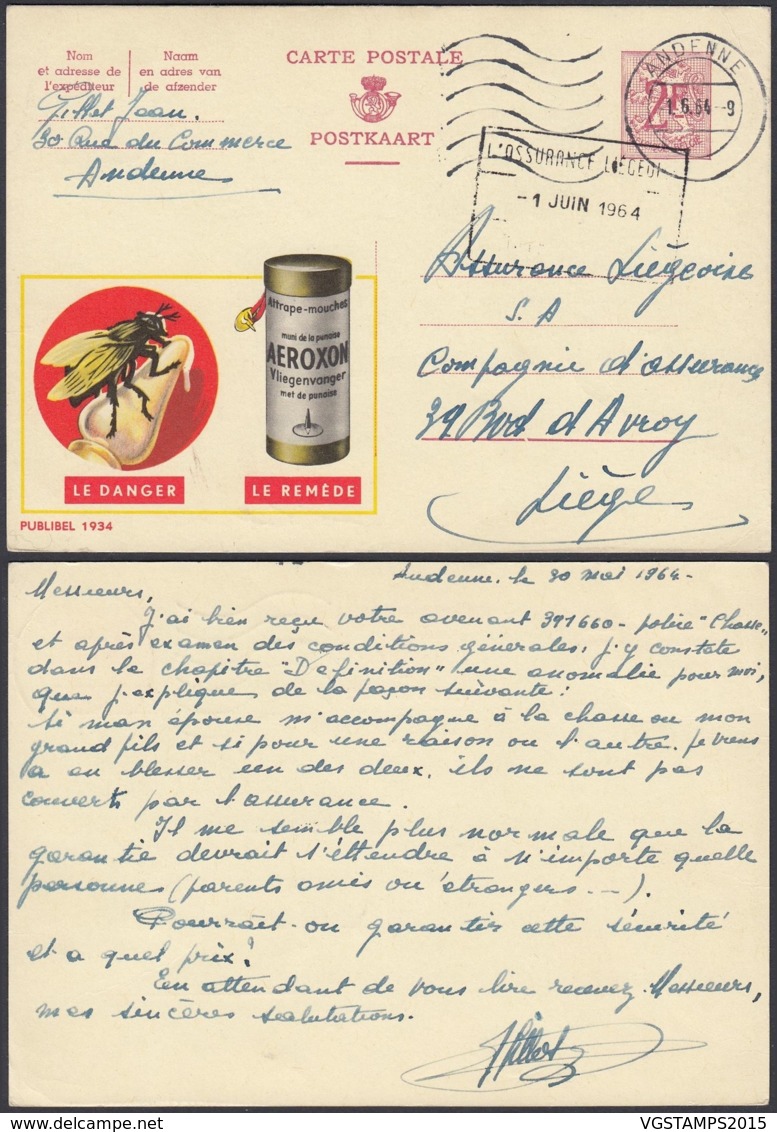 Nom
et adresse de
l'expéditeur
Naam
en adres van
de afzender
CARTE POSTALE
POSTKAART
2F
ANDENNE
1.6.64-9
Jean.
30 Rue du Commerce
Andenne
L'ASSURANCE LIEGEOI
-1 JUIN 1964
Assurance Liégeoise
S.A
Compagnie d'assurance
39 Bvd d'Avroy
Liège
Attrape-mouches
muni de la punaise
AEROXON
Vliegenvanger
met de punaise
LE DANGER
LE REMÈDE
PUBLIBEL 1934
Andenne. le 30 mai 1964-
Messieurs,
J'ai bien reçu votre avenant 391660- police "Chasse"
et après examen des conditions générales, j'y constate
dans le chapitre "Définition" une anomalie pour moi,
que j'explique de la façon suivante:
Si mon épouse m'accompagne à la chasse ou mon
grand fils et si pour une raison ou l'autre. je viens
a en blesser un des deux, ils ne sont pas
couverts par l'assurance.
Il me semble plus normale que la
garantie devrait s'éttendre à n'importe quelle
personnes (parents amis ou étrangers ---).
Pourrait-on garantir cette sécurité
et a quel prix?
En attendant de vous lire recevez Messieurs,
mes sincères salutations.
VGSTAMPS2015